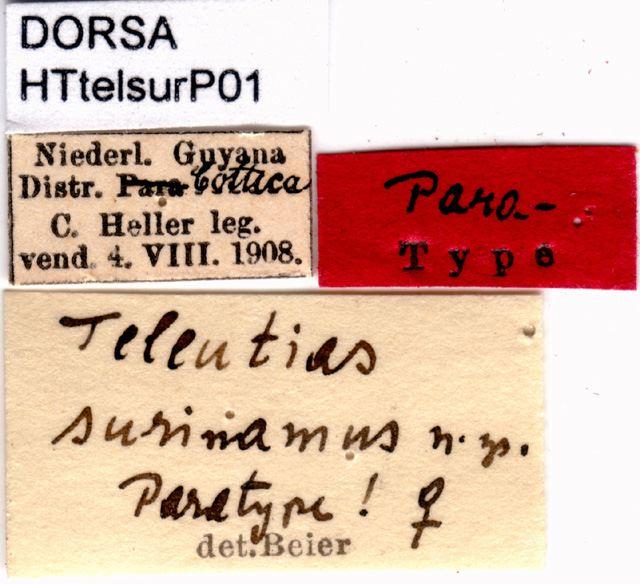 DORSA
HTtelsurP01
Niederl. Guyana
Distr. Para Cottica
C. Heller leg.
vend. 4. VIII. 1908.
Para-
Type
Teleutias
surinamus n. sp.
Paratype! ♀
det. Beier